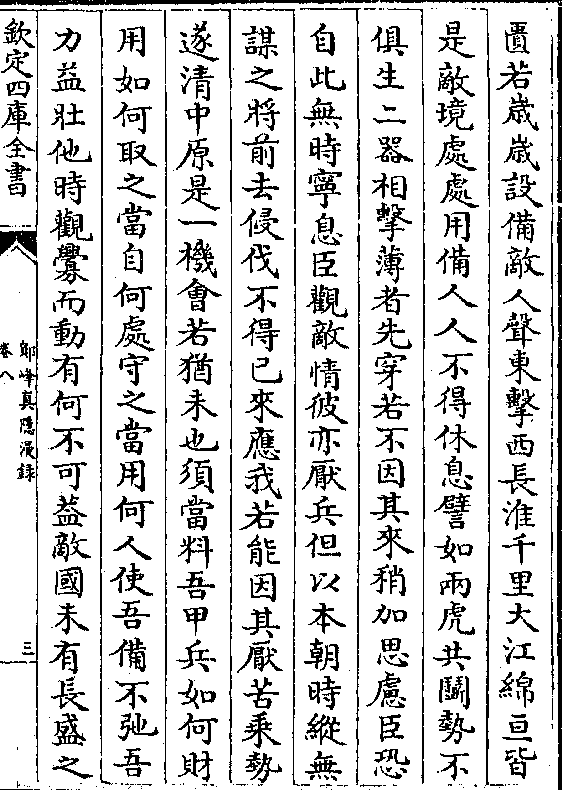 匱若歳歳設備敵人聲東擊西長淮千里大江綿亘皆
是敵境處處用備人人不得休息譬如兩虎共鬭勢不
俱生二器相擊薄者先穿若不因其來稍加思慮臣恐
自此無時寧息臣觀敵情彼亦厭兵但以本朝時縱無
謀之將前去侵伐不得已來應我若能因其厭苦乘勢
遂清中原是一機會若猶未也須當料吾甲兵如何財
用如何取之當自何處守之當用何人使吾備不弛吾
力益壯他時觀釁而動有何不可葢敵國未有長盛之
欽定四庫全書
鄮峰真隱漫錄
卷八
三